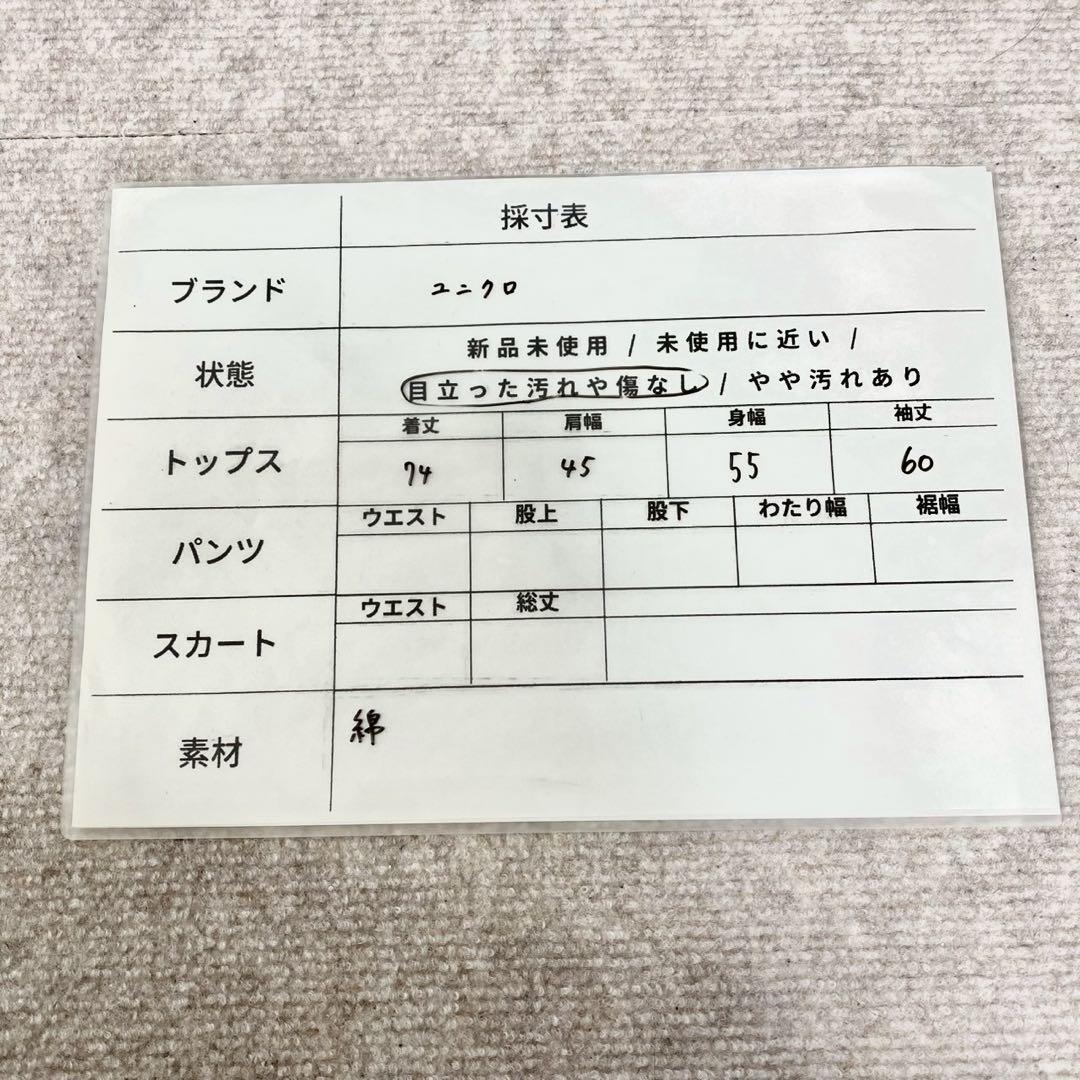 採寸表
ブランド ユニクロ
状態 新品未使用 / 未使用に近い /
目立った汚れや傷なし / やや汚れあり
着丈 肩幅 身幅 袖丈
トップス 74 45 55 60
ウエスト 股上 股下 わたり幅 裾幅
パンツ
ウエスト 総丈
スカート
素材 綿